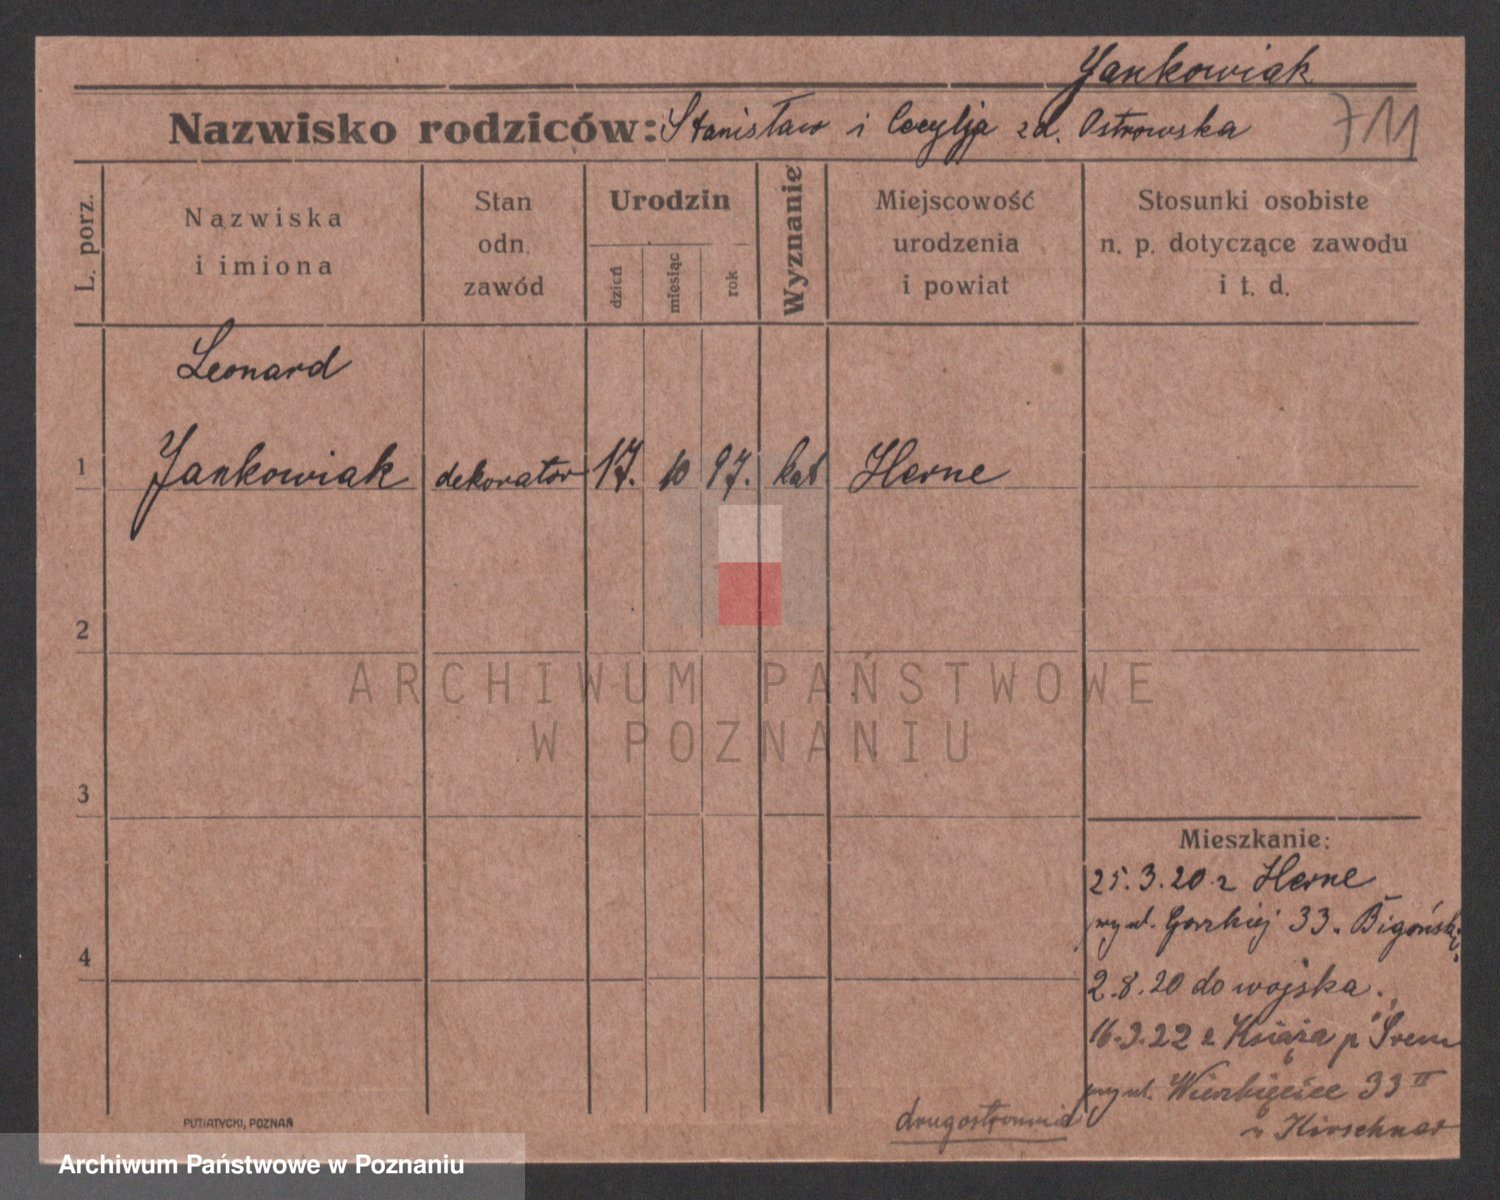 Jankowiak
Nazwisko rodziców: Stanisław i Cecylja zd. Ostrowska 711
L. porz.
Nazwiska
i imiona
Stan
odn.
zawód
Urodzin
dzień
miesiąc
rok
Wyznanie
Miejscowość
urodzenia
i powiat
Stosunki osobiste
n. p. dotyczące zawodu
i t. d.
Leonard
1 Jankowiak dekorator 17. 10 97. kat Herne
2
3
4
Mieszkanie:
25.3.20 z Herne
przy ul. 33.
2.8.20 do wojska.
16.3.22 z Książa p Śrem
przy ul. Wierzbięcice 33 II
drugostronnie
PUTIATYCKI, POZNAŃ
ARCHIWUM PAŃSTWOWE
W POZNANIU
Archiwum Państwowe w Poznaniu